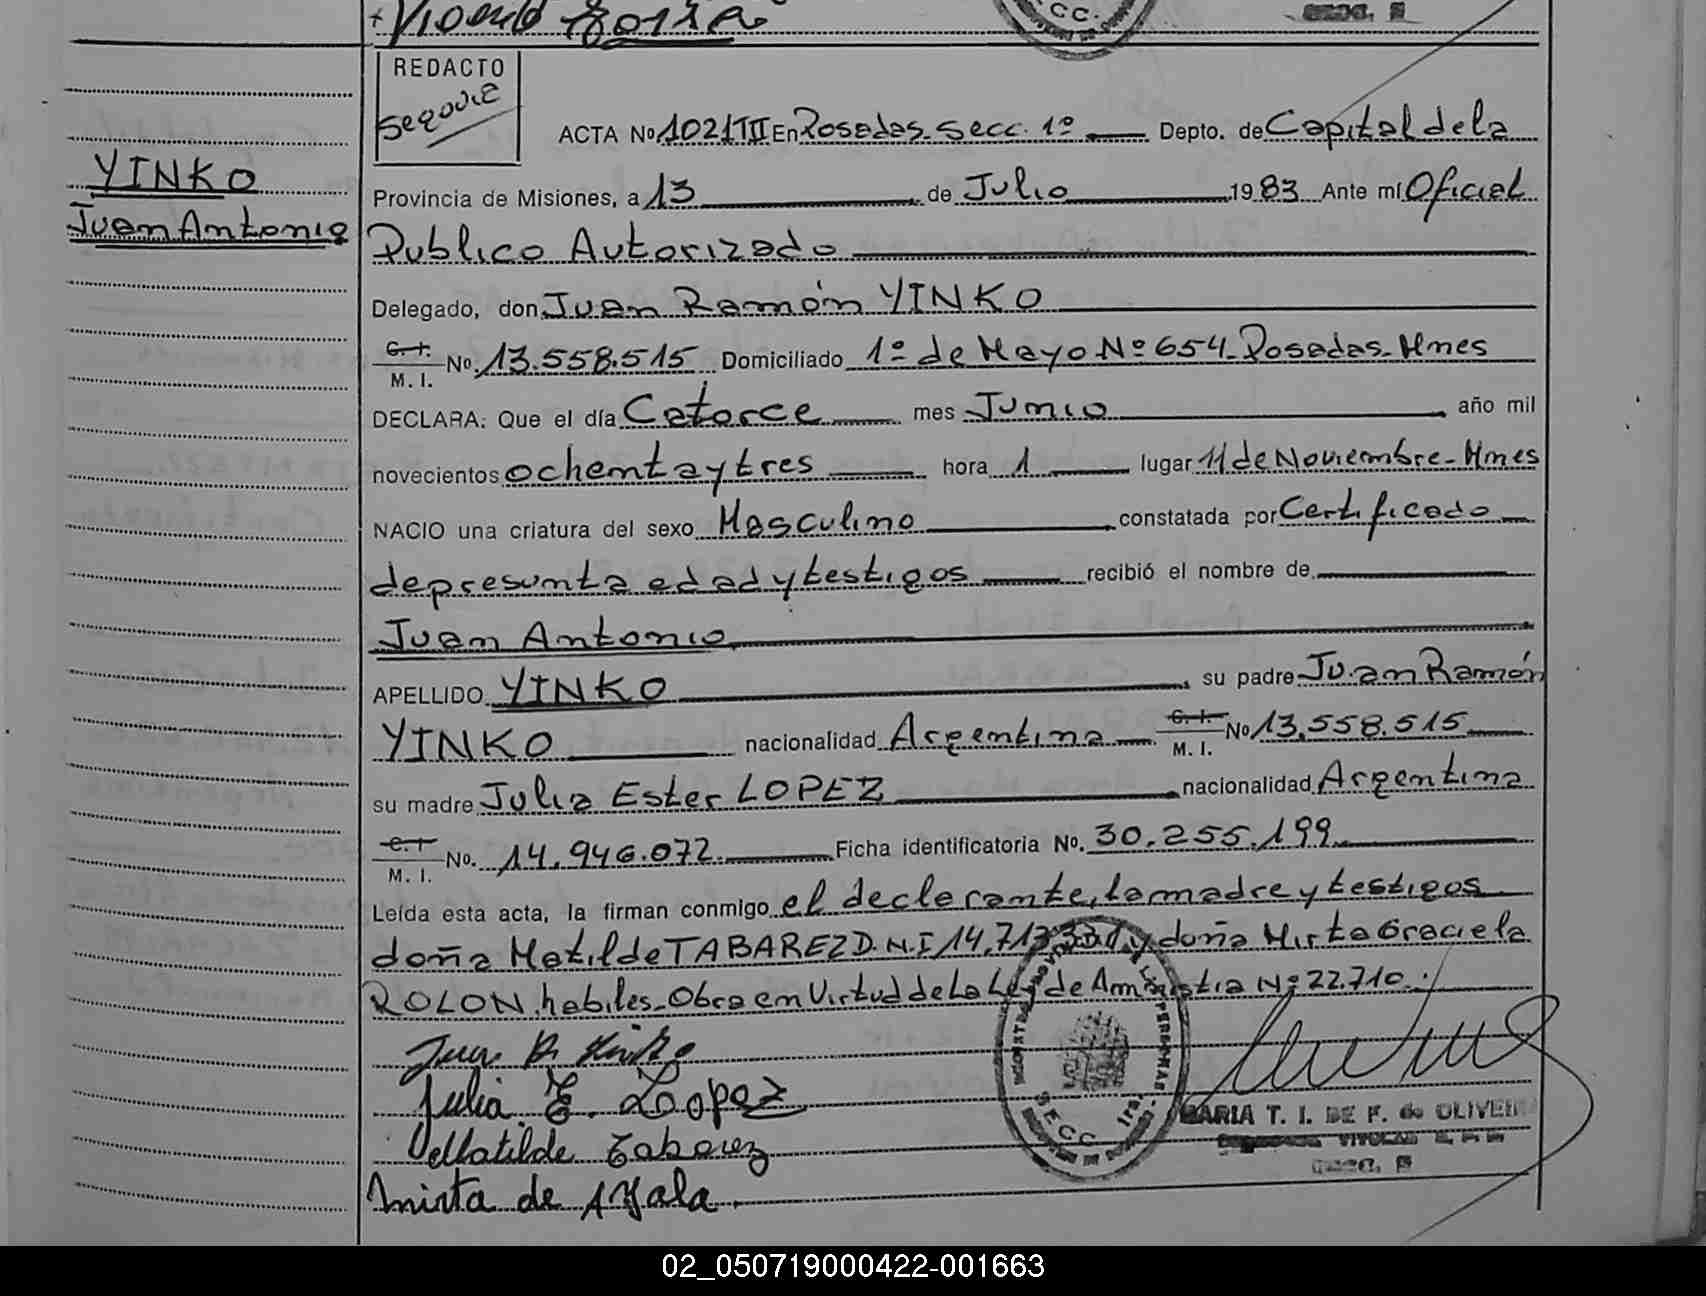 REDACTO
Segovia
ACTA No 1021 TII En Posadas. Secc. 1º Depto. de Capital de la
YINKO
Juan Antonio
Provincia de Misiones, a 13 de Julio 1983 Ante mí Oficial
Publico Autorizado
Delegado, don Juan Ramón YINKO
C. I. M. I. No. 13.558.515 Domiciliado 1º de Mayo Nº 654- Posadas- Mnes
DECLARA: Que el día Catorce mes Junio año mil
novecientos ochenta y tres hora 1 lugar 11 de Noviembre- Mnes
NACIO una criatura del sexo Masculino constatada por Certificado
de presunta edad y testigos recibió el nombre de
Juan Antonio
APELLIDO YINKO, su padre Juan Ramón
YINKO nacionalidad Argentina C. I. M. I. No 13.558.515
su madre Julia Ester LOPEZ nacionalidad Argentina
C. I M. I. No. 14.946.072. Ficha identificatoria No. 30.255.199
Leída esta acta, la firman conmigo el declarante, la madre y testigos
doña Matilde TABAREZ D.N.I 14.713.331 y doña Mirta Graciela
ROLON, habiles- Obra en Virtud de la Ley de Amnistia Nº 22.710.
Julia E. Lopez
Matilde Tabarez
Mirta de Ayala
SECC. 1ra.
MARIA T. I. DE F. de OLIVEIRA
02_050719000422-001663